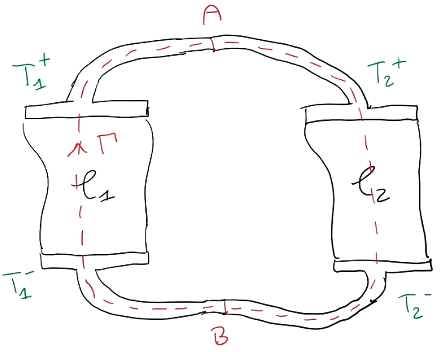 A
T₁⁺
T₂⁺
Γ
ℓ₁
ℓ₂
T₁⁻
T₂⁻
B